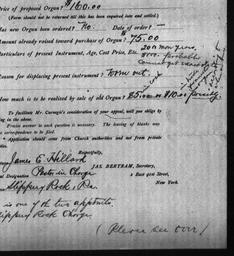 Price of proposed Organ? $160.00
(Form should not be returned till this has been required here and settled.)
Has new Organ been ordered? No. Date of order?
Amount already raised toward purchase of Organ? $75.00
Particulars of present Instrument, Age, Cost Price, Etc.
Reason for displacing present instrument? Worn out.
How much is to be realized by sale of old Organ? $5.00 or $10.00 possibly
To facilitate Mr. Carnegie's consideration of your appeal, will you oblige by filling in the above.
Precise answer to each question is necessary. The leaving of blanks may
correspondence to be filed.
Application should come from Church authorities and not from private
Respectfully,
James E Hillard
JAS. BERTRAM, Secretary,
Designation Pastor in Charge
2 East 91st Street,
Slippery Rock, Pa.
New York.
is one of the two appts.
Slippery Rock Charge
(Please see over)